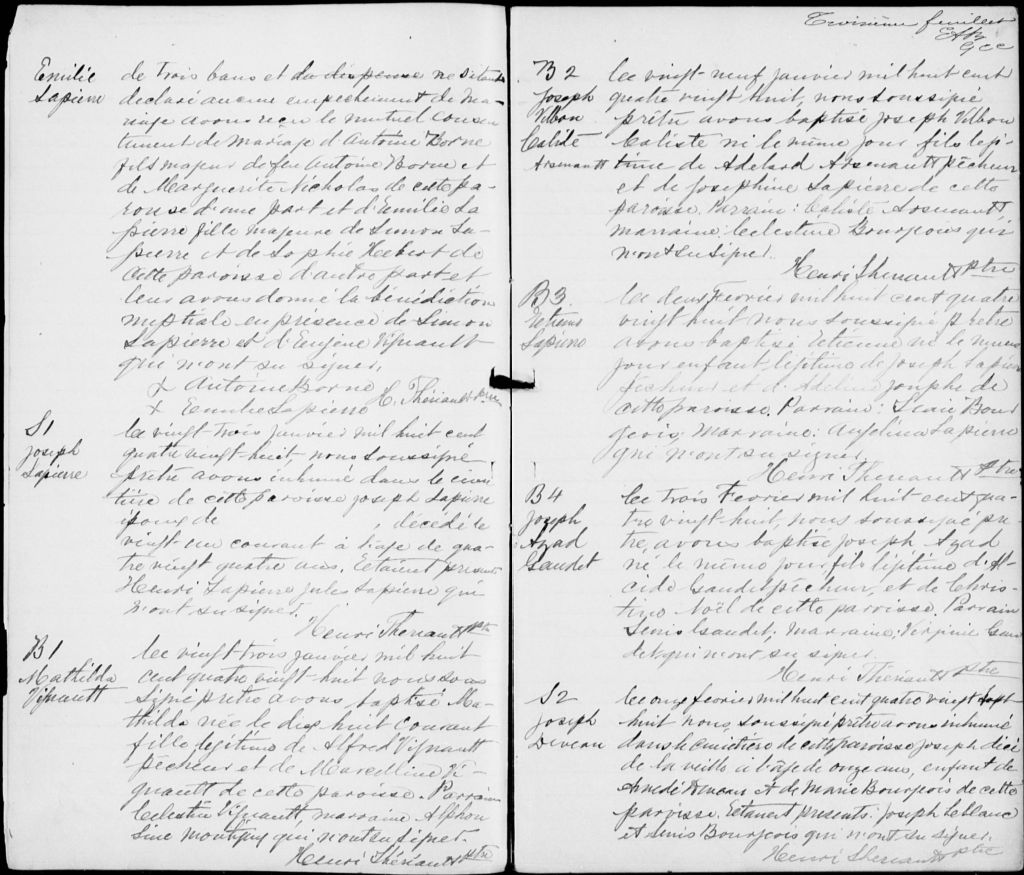 Emilie
Lapierre
de trois bans et du dispense ne s'étant
declaré aucun empechement de ma-
riage avons reçu le mutuel consen-
tement de mariage d'Antoine Borne
fils majeur de feu Antoine Borne et
de Marguerite Nicholas de cette pa-
roisse d'une part et d'Emilie La
pierre fille majeure de Simon La-
pierre et de Sophie Hebert de
cette paroisse d'autre part et
leur avons donné la bénédiction
nuptiale en présence de Simon
Lapierre et d'Eugène Vignault
qui n'ont su signer.
X Antoine Borne
X Emilie Lapierre H. Thériault Ptre
S1
Joseph
Lapierre
Le vingt-trois janvier mil huit cent
quatre vingt-huit, nous soussigné
prêtre avons inhumé dans le cime
tière de cette paroisse joseph Lapierre
époux de , décédé le
vingt un courant à l'age de qua-
tre vingt quatre ans. Etaient present
Henri Lapierre jules Lapierre qui
n'ont su signer.
Henri Theriault Ptre
B1
Mathilda
Vignault
Le vingt trois janvier mil huit
cent quatre vingt-huit nous sous
signé pretre avons baptisé Ma-
thilda née le dix huit courant
fille legitime de Alfred Vignault
pêcheur et de Marcelline Vi-
gnault de cette paroisse. Parrain
Celestin Vignault, marraine Alphon
sine montigny qui n'ont su signer.
Henri Thériault ptre
Troisième feuillet
GCC
B2
Joseph
Vilbon
Caliste
Arsenault
Le vingt-neuf janvier mil huit cent
quatre vingt huit, nous soussigné
prêtre avons baptisé joseph Vilbon
Caliste né le même jour fils légi-
time de Adelard Arsenault pêcheur
et de Josephine Lapierre de cette
paroisse. Parrain: Caliste Arsenault,
marraine: Celestine Bourgeois qui
n'ont su signer.
Henri Theriault ptre
B3
Etienne
Lapierre
Le deux Fevrier mil huit cent quatre
vingt huit nous soussigné prêtre
avons baptisé Etienne né le meme
jour enfant légitime de Joseph Lapierre
pecheur et d'Adeline josephe de
cette paroisse. Parrain: Bour
geois; Marraine: Angelina Lapierre
qui n'ont su signer
Henri Theriault Ptre
B4
Joseph
Azad
Gaudet
Le trois Fevrier mil huit cent qua-
tre vingt-huit, nous soussigné pre-
tre, avons baptisé joseph Azad
né le même jour fils légitime d'Al-
cide Gaudet pêcheur, et de Chris-
tine Noël de cette paroisse. Parrain
Gaudet; marraine; Virginie Gau
det qui n'ont su signer
Henri Thériault ptre
S2
Joseph
Deveau
Le onze fevrier mil huit cent quatre vingt
huit nous soussigné prêtre avons inhumé
dans le cimetiere de cette paroisse joseph décé
de la veille à l'âge de onze ans, enfant de
Amédé Deveau et de Marie Bourgeois de cette
paroisse. Etaient presents: joseph Leblanc
et Bourgeois qui n'ont su signer.
Henri Theriault ptre